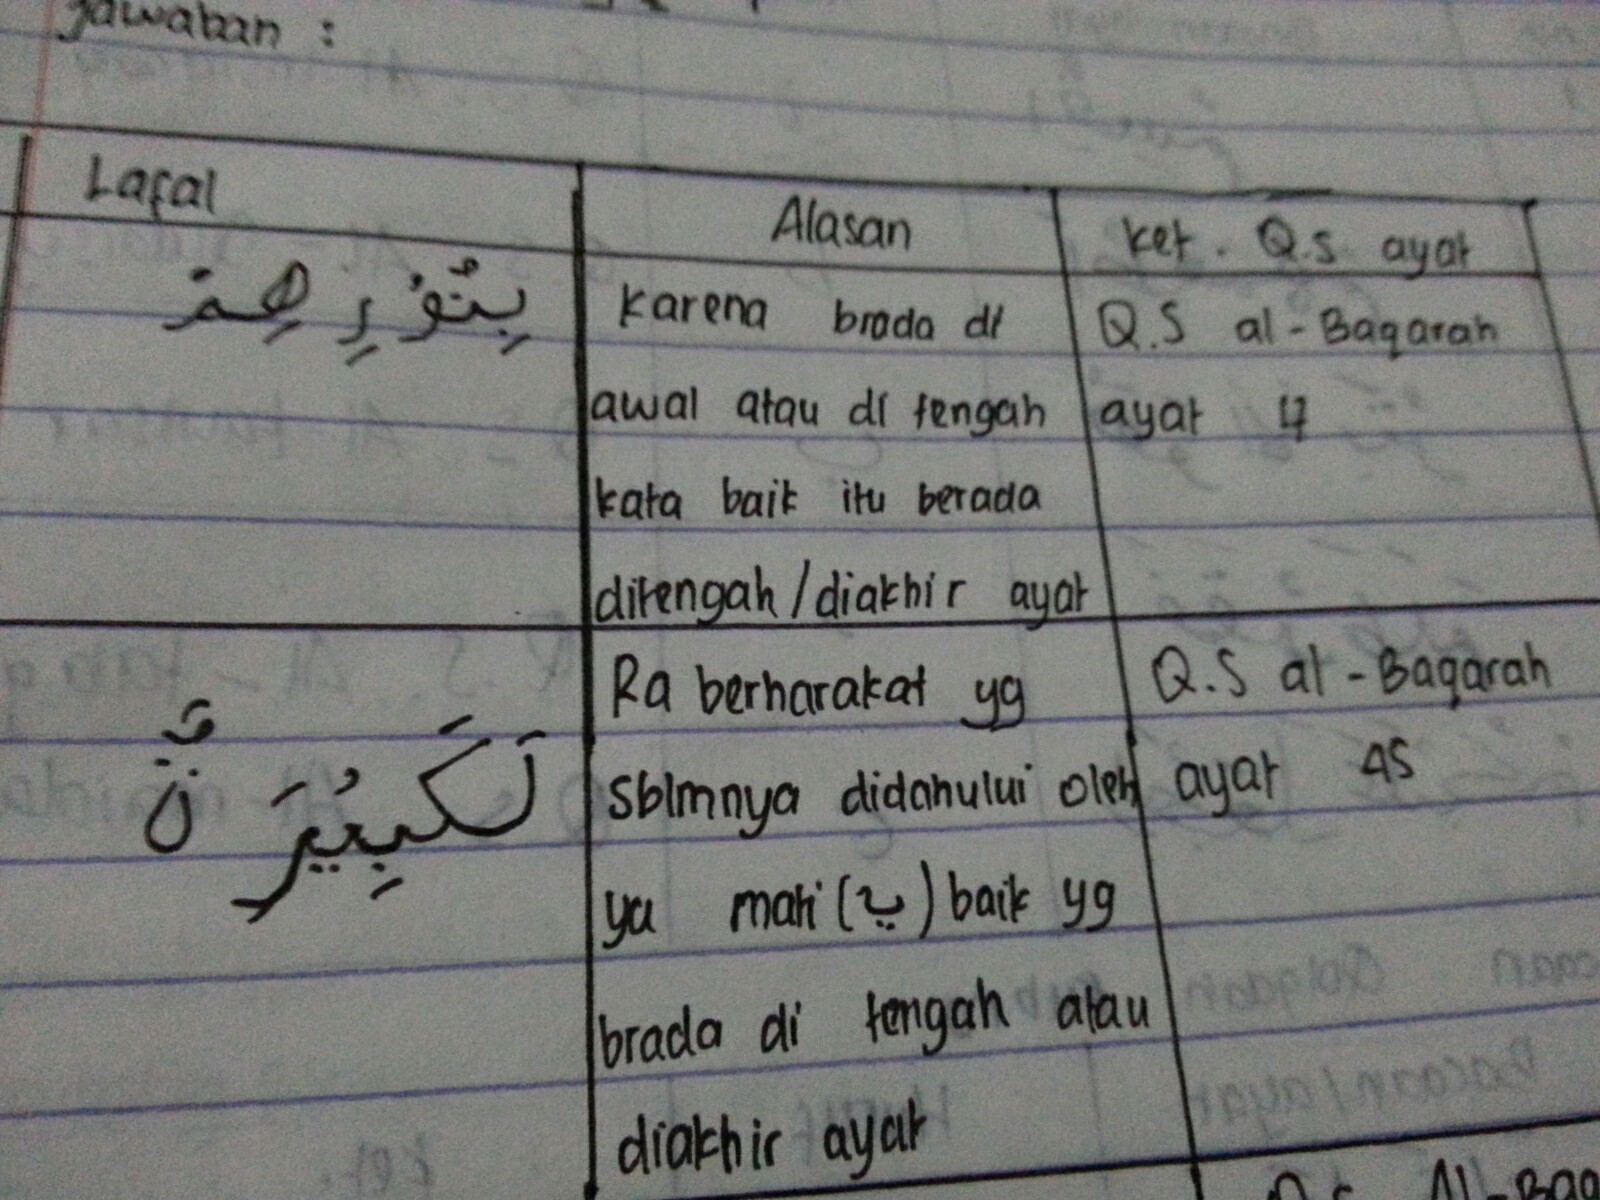 jawaban :
Lafal
Alasan
ket. Q.S ayat
بِنُوْرِهِمْ
karena brada di
awal atau di tengah
kata baik itu berada
ditengah/diakhir ayat
Q.S al-Baqarah
ayat 17
لَكَبِيْرَةٌ
Ra berharakat yg
sblmnya didahului oleh
ya mati (يـ) baik yg
brada di tengah atau
diakhir ayat
Q.S al-Baqarah
ayat 45